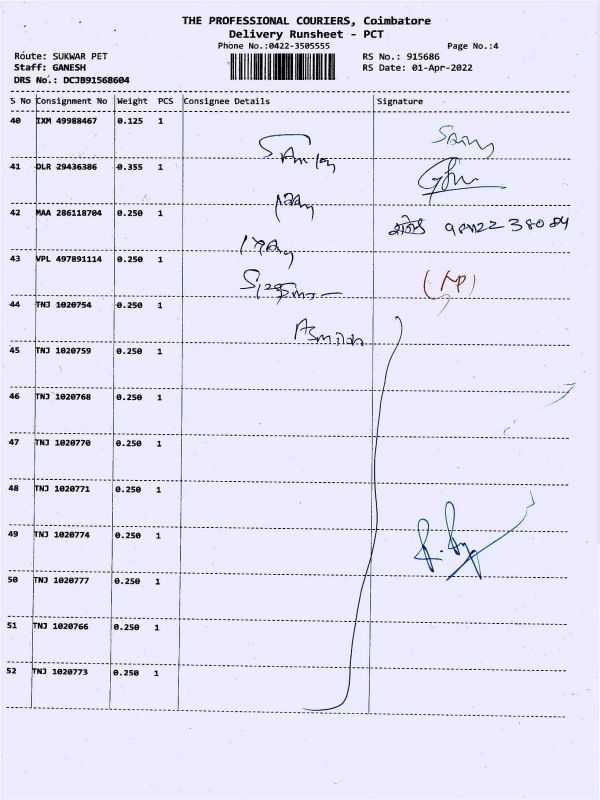 THE PROFESSIONAL COURIERS, Coimbatore
Delivery Runsheet - PCT
Phone No.:0422-3505555
Page No.:4
Route: SUKWAR PET
RS No.: 915686
Staff: GANESH
RS Date: 01-Apr-2022
DRS No.: DCJB91568604
S No Consignment No Weight PCS Consignee Details Signature
40 IXM 49988467 0.125 1
41 DLR 29436386 0.355 1
42 MAA 286118704 0.250 1
43 VPL 497891114 0.250 1
44 TNJ 1020754 0.250 1
45 TNJ 1020759 0.250 1
46 TNJ 1020768 0.250 1
47 TNJ 1020770 0.250 1
48 TNJ 1020771 0.250 1
49 TNJ 1020774 0.250 1
50 TNJ 1020777 0.250 1
51 TNJ 1020766 0.250 1
52 TNJ 1020773 0.250 1